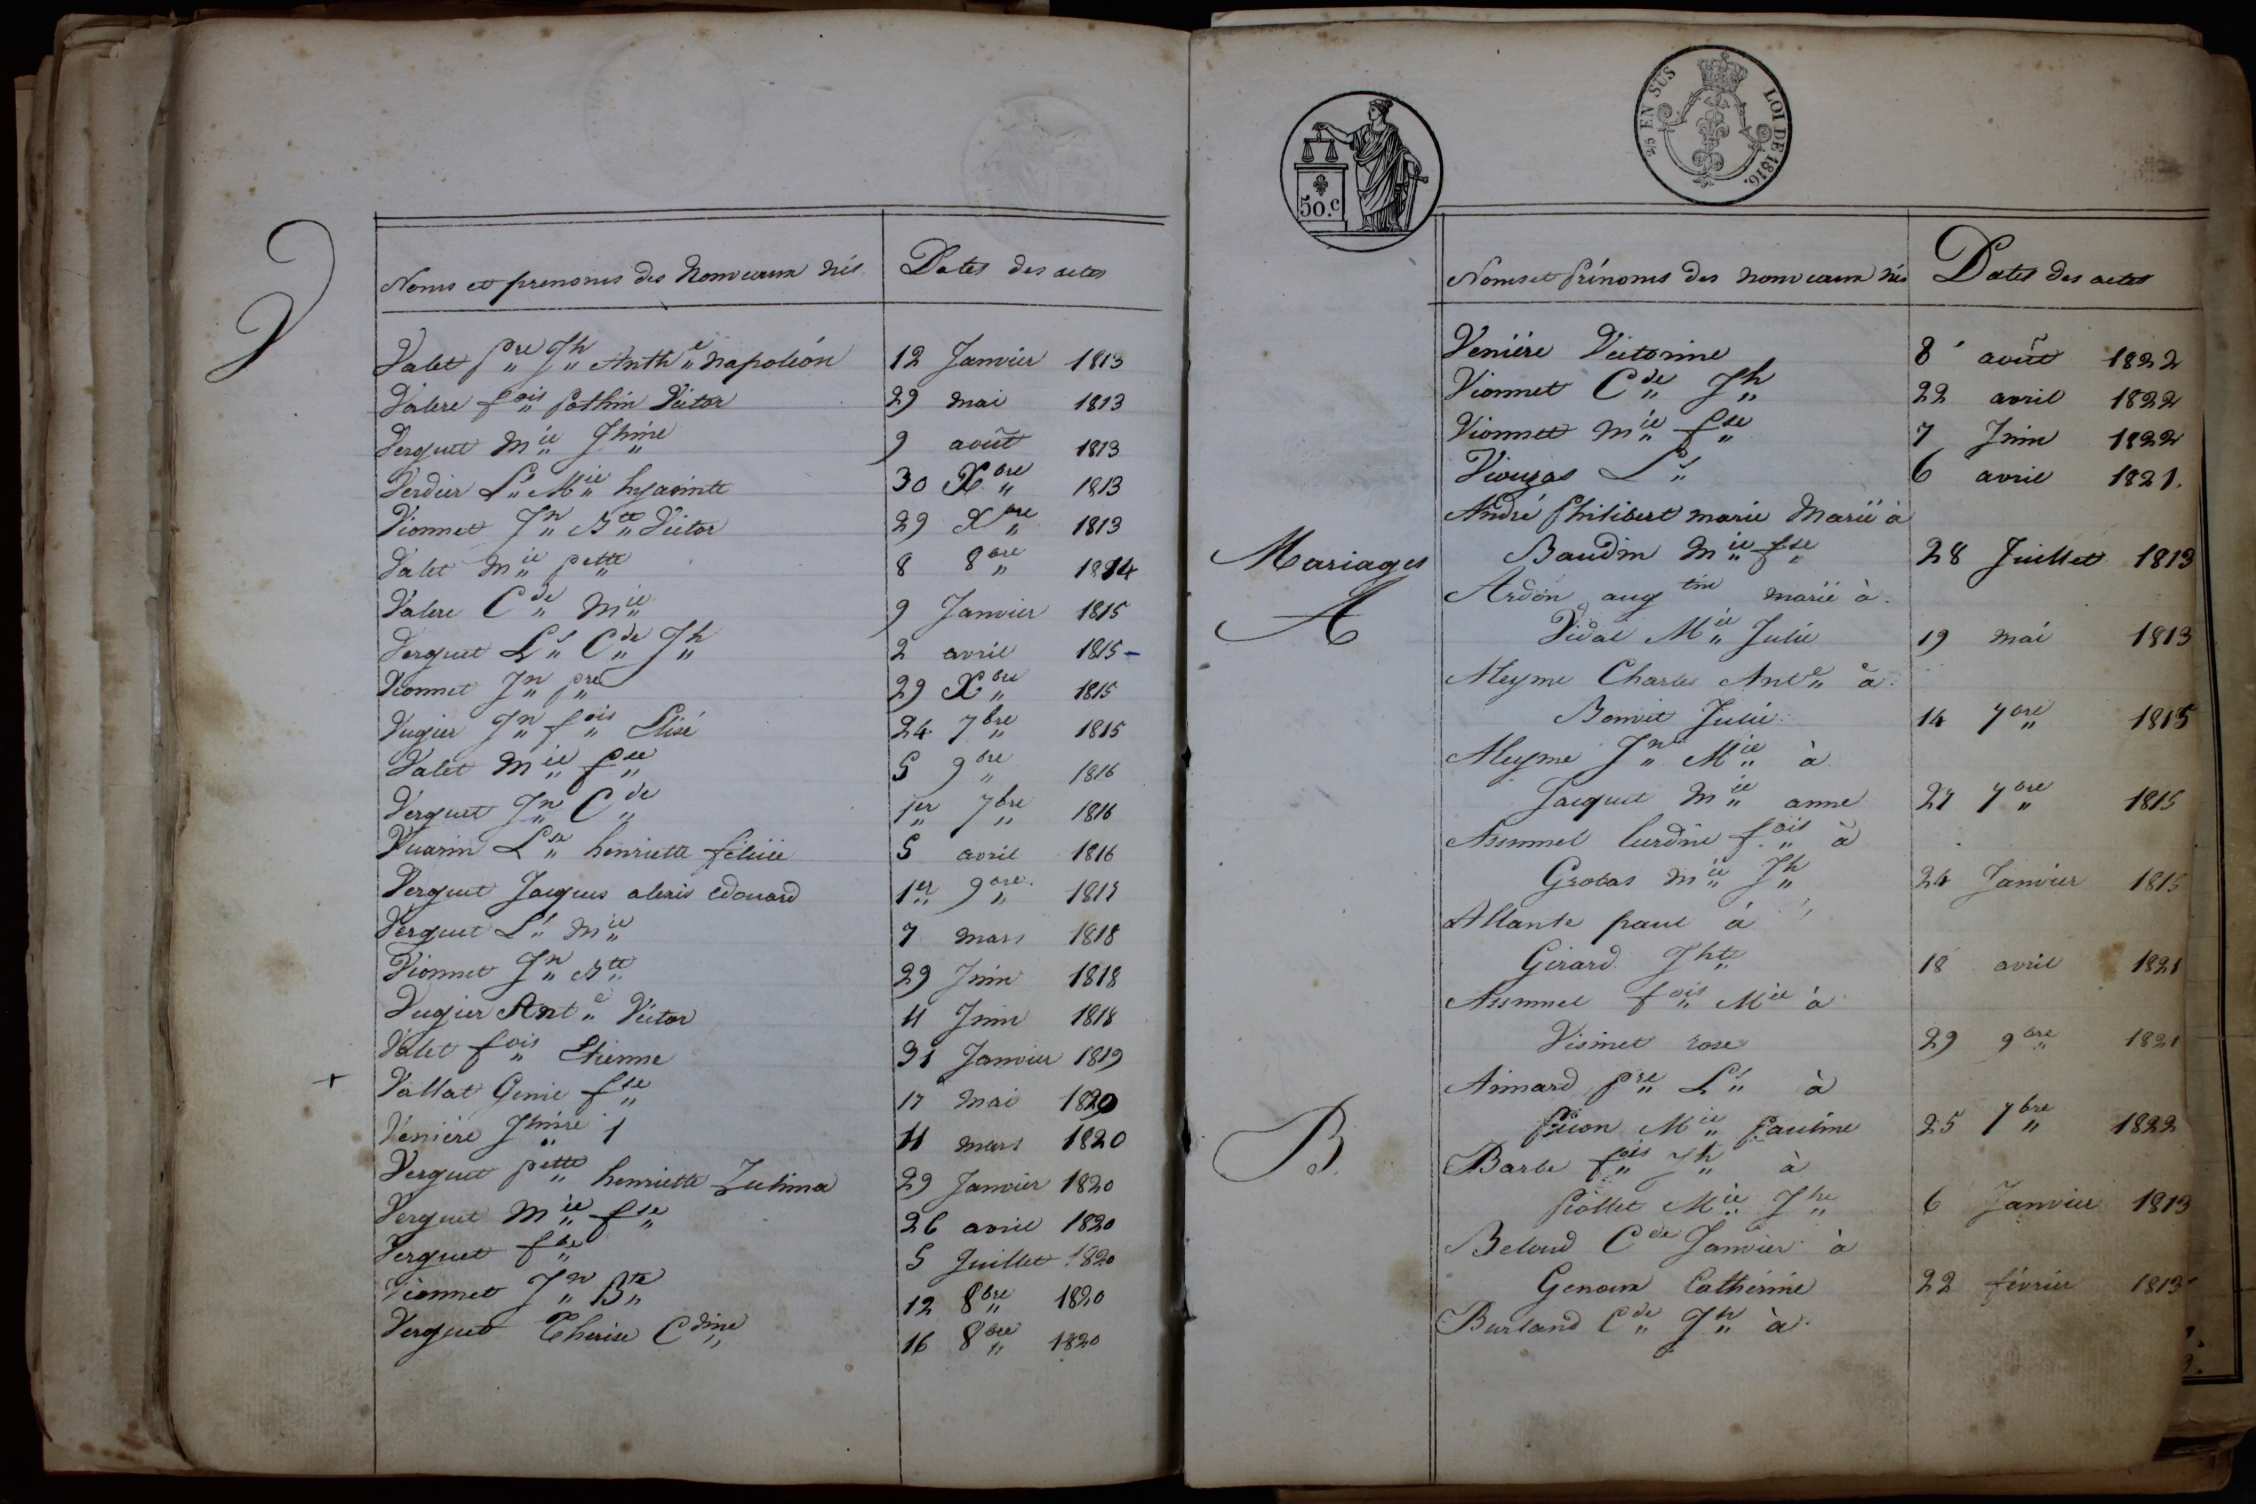 V
Noms et prenoms des Nouveaux nés Dates des actes
Valet pre Jh Anthe napoléon 12 Janvier 1813
Valere fois pothin Victor 29 mai 1813
Verguet mie Jhine 9 août 1813
Verdier Ls Mie hyacinte 30 Xbre 1813
Vionnet Jn Bte Victor 29 Xbre 1813
Valet mie pette 8 8bre 1814
Valere Cde mie 9 Janvier 1815
Verguet Ls Cde Jh 2 avril 1815
Vionnet Jn pre 29 Xbre 1815
Vugier Jn fois Elisé 24 7bre 1815
Valet mie fse 5 9bre 1816
Verguet Jn Cde 1er 7bre 1816
Vuarin Lse henriette félicie 5 avril 1816
Verguet Jacques alexis edouard 1er 9bre 1817
Verguet Ls mie 7 mars 1818
Vionnet Jn Bte 29 Juin 1818
Vugier Ante Victor 11 Juin 1818
Valet fois Etienne 31 Janvier 1819
+ Vallat Genie fse 17 mai 1820
Veniere Jhine 1 11 mars 1820
Verguet pette henriette Zulima 29 Janvier 1820
Verguet mie fse 26 avril 1820
Verguet fse 5 Juillet 1820
Vionnet Jn Bte 12 8bre 1820
Verguet Therise Cdine 16 8bre 1820
50.c
25 EN SUS LOI DE 1816.
Noms et Prénoms des nouveaux nés Dates des actes
Veniére Victorine 8 août 1822
Vionnet Cde Jh 22 avril 1822
Vionnet mie fse 7 Juin 1822
Viouzas Ls 6 avril 1821.
André Philibert marie Marié à
Mariages Baudin mie fse 28 Juillet 1813
A Ardon augtin marié à
Vidal Mie Julie 19 mai 1813
Aleyme Charles Ante à
Bonvit Julie 14 7bre 1815
Aleyme Jn Mie à
Jacquet mie anne 27 7bre 1815
Assumel lurdin fois à
Grobas mie Jh 24 Janvier 1815
Allante paul à
Girard Jhte 18 avril 1821
Assumel fois Mie à
Vismet rose 29 9bre 1821
Aimard pre Ls à
Mie Pauline 25 7bre 1822
B Barbe fois Jh à
Piollet Mie Jhe 6 Janvier 1813
Beloud Cde Janvier à
Genoux Catherine 22 février 1813
Burland Cde Jh à